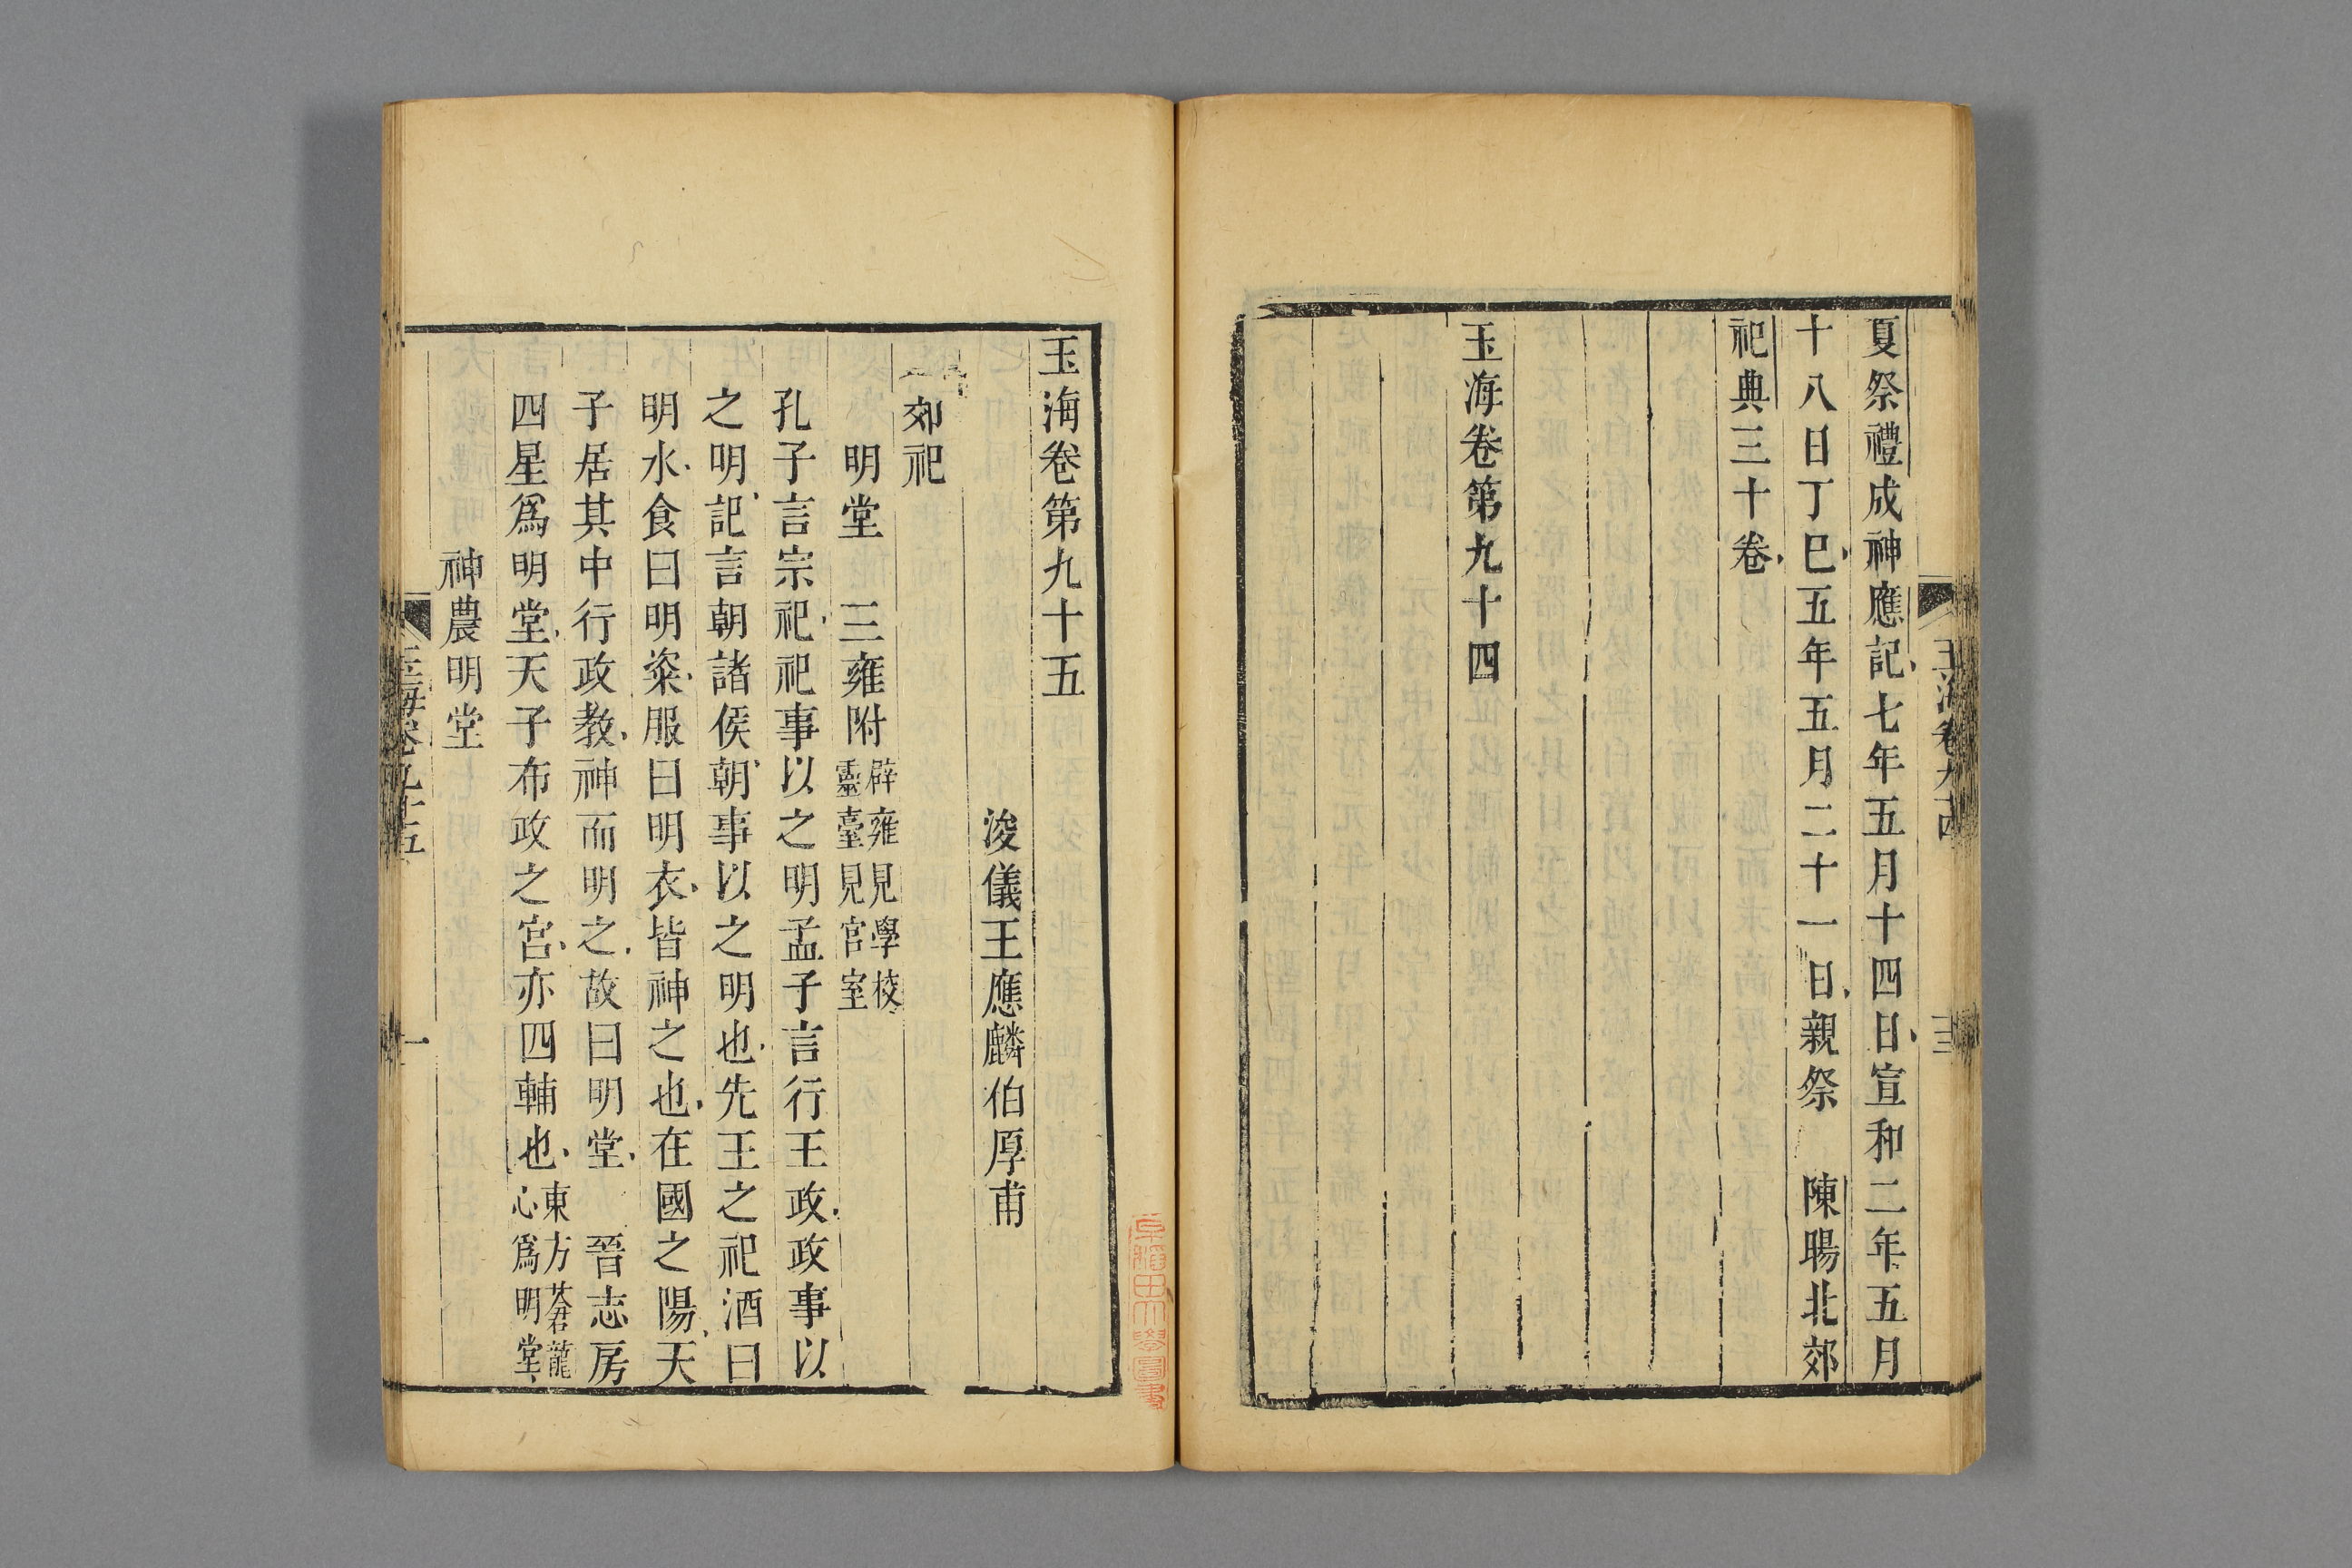 夏祭禮成神應記七年五月十四日宣和二年五月
十八日丁巳五年五月二十一日親祭　陳暘北郊
祀典三十卷
玉海卷第九十四
玉海卷第九十五
浚儀王應麟伯厚甫
郊祀
明堂　三雍附
辟雍見學校
靈臺見宮室
孔子言宗祀祀事以之明孟子言行王政政事以
之明記言朝諸侯朝事以之明也先王之祀酒曰
明水食曰明粢服曰明衣皆神之也在國之陽天
子居其中行政教神而明之故曰明堂　晉志房
四星爲明堂天子布政之宮亦四輔也
東方蒼龍
心爲明堂
神農明堂
玉海卷九十五
一
早稻田大學圖書